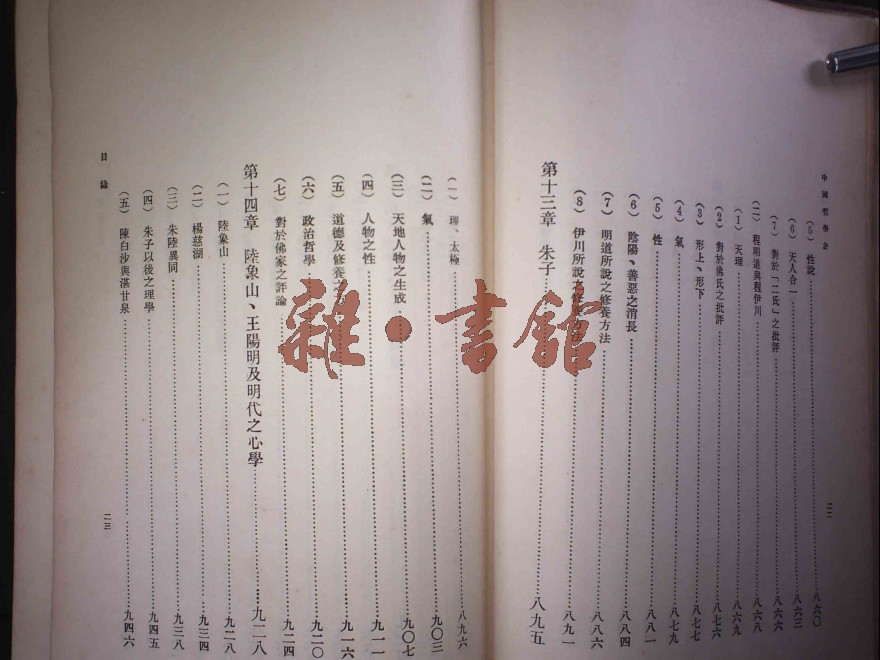 中國哲學史
(5) 性說 八六〇
(6) 天人合一 八六三
(7) 對於「二氏」之批評 八六六
(二) 程明道與程伊川 八六八
(1) 天理 八六九
(2) 對於佛氏之批評 八七六
(3) 形上、形下 八七七
(4) 氣 八七九
(5) 性 八八一
(6) 陰陽、善惡之消長 八八四
(7) 明道所說之修養方法 八八六
(8) 伊川所說之修養方法 八九一
第十三章 朱子 八九五
二二
(一) 理、太極 八九六
(二) 氣 九〇三
(三) 天地人物之生成 九〇七
(四) 人物之性 九一一
(五) 道德及修養之方 九一六
(六) 政治哲學 九二〇
(七) 對於佛家之評論 九二四
第十四章 陸象山、王陽明及明代之心學 九二八
(一) 陸象山 九二八
(二) 楊慈湖 九三四
(三) 朱陸異同 九三八
(四) 朱子以後之理學 九四五
(五) 陳白沙與湛甘泉 九四六
目錄
二三
雜·書館